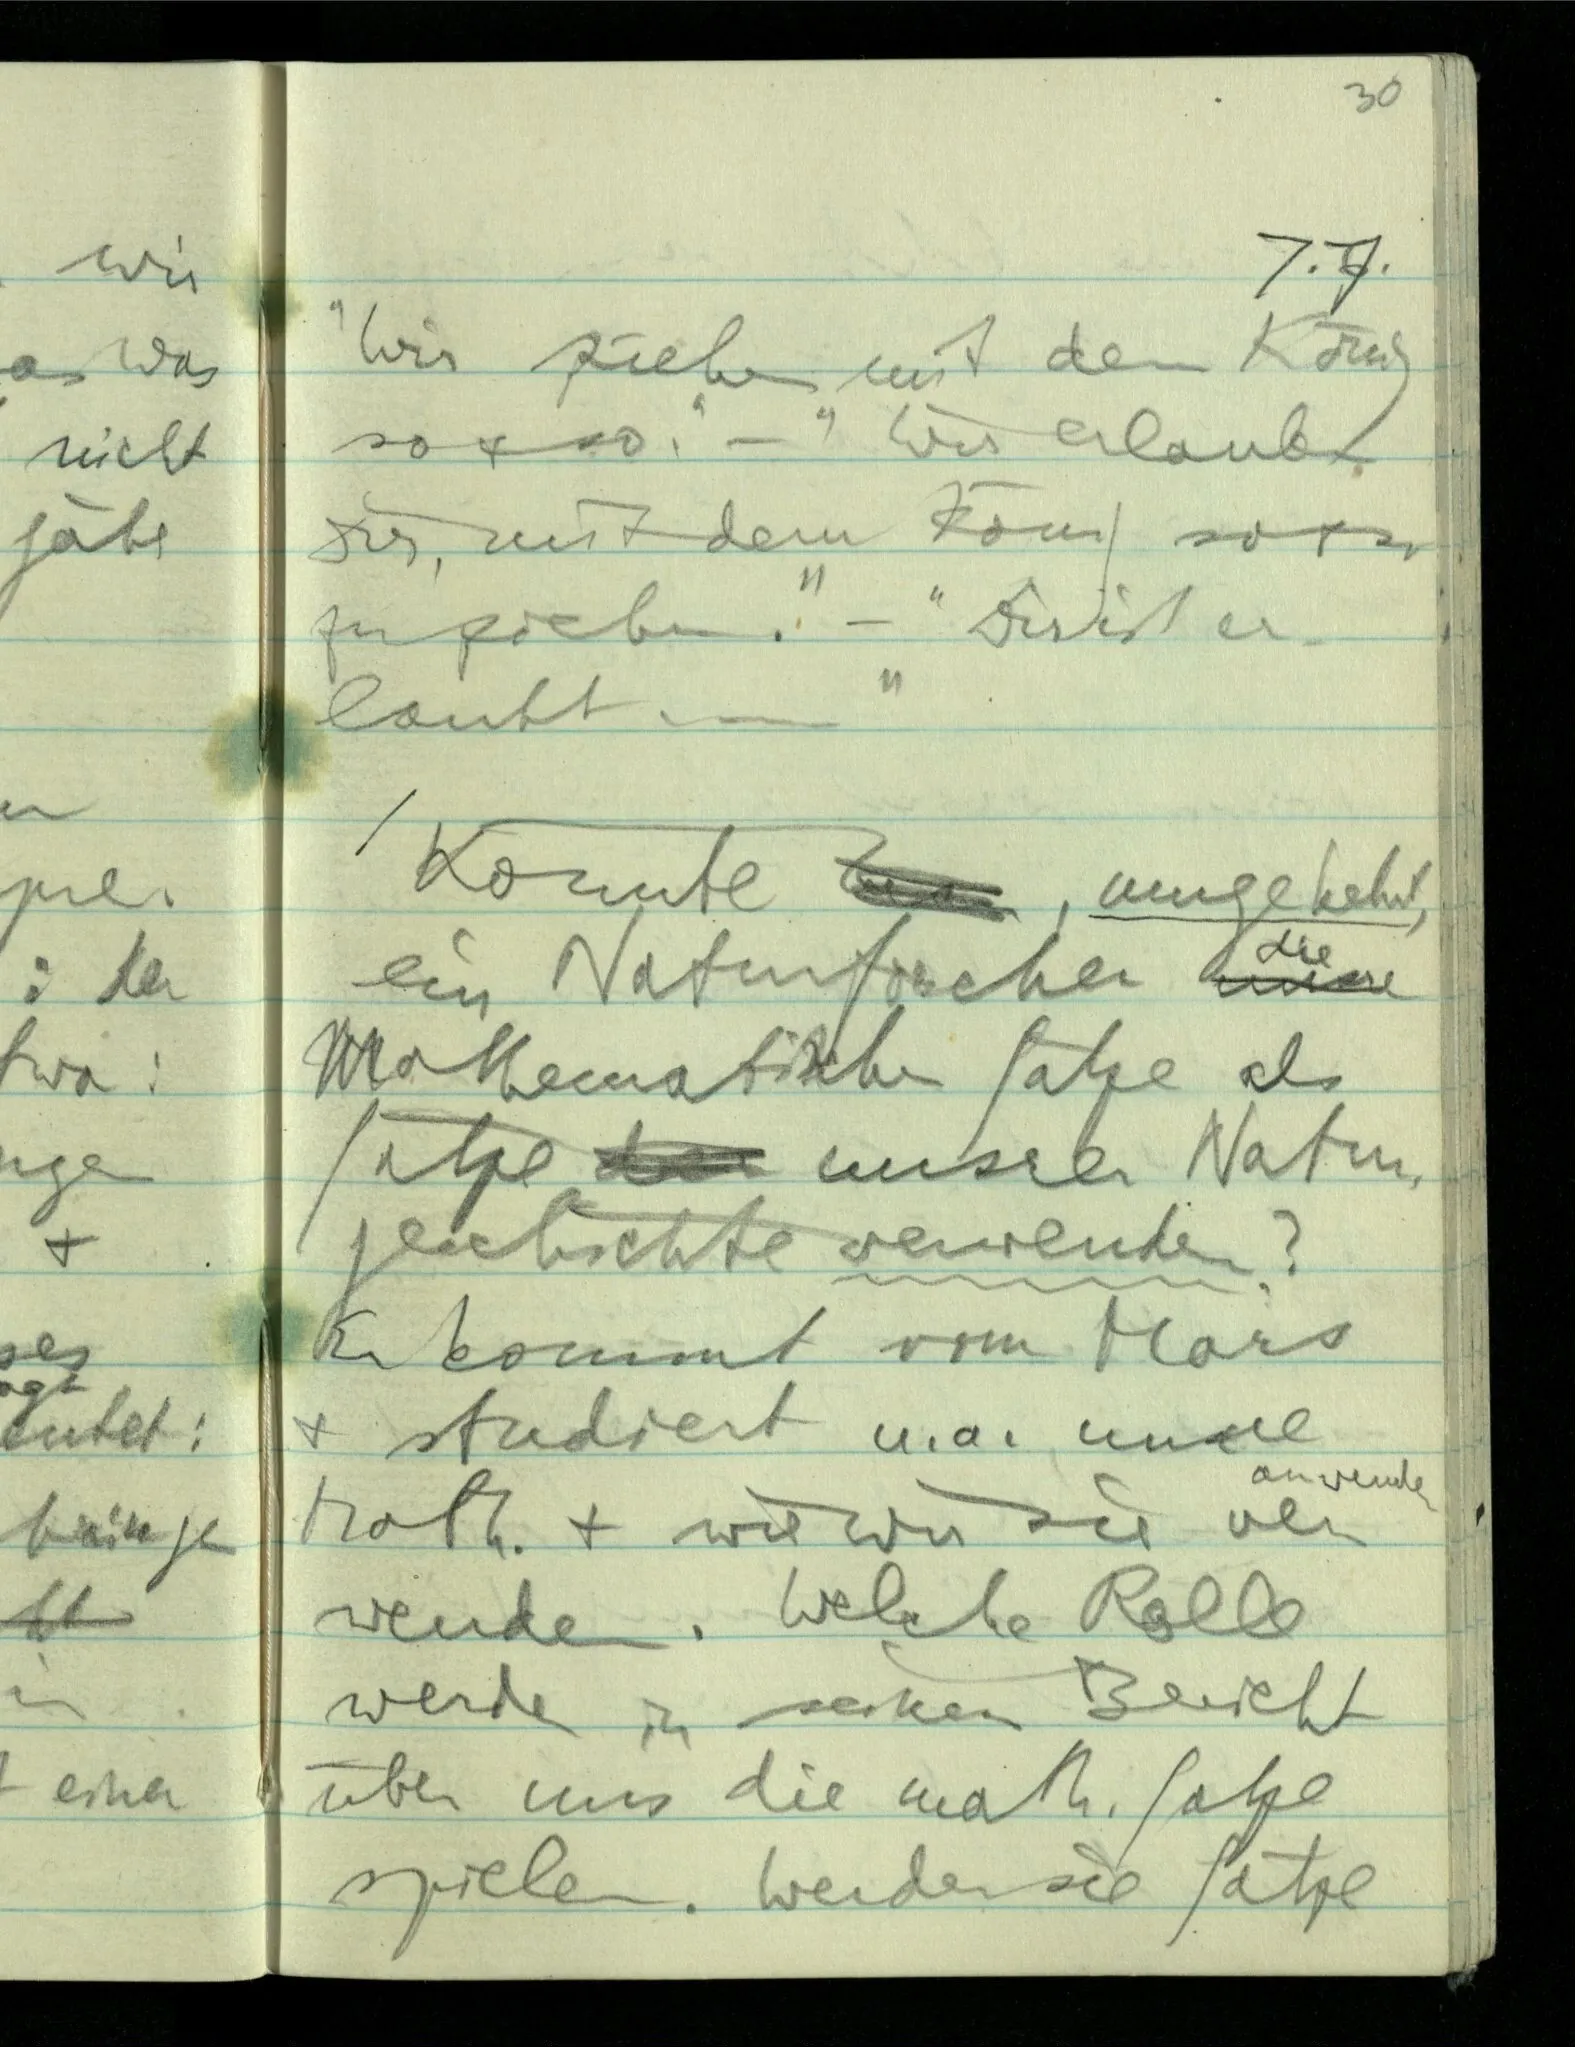 wir
was
nicht
gäbe
: der
etwa :
+
bringe
einer
30
7.7.
"Wir ziehen mit dem König
so + so." – "Wir erlauben
Dir, mit dem König so + so
zu ziehen." – "Dir ist er-
laubt ——"
/ Könnte, umgekehrt,
ein Naturforscher die
Mathematischen Sätze als
Sätze unserer Natur-
geschichte verwenden?
Er kommt vom Mars
+ studiert u.a. unsre
anwenden
Math. + wie wir sie ver
wenden. Welche Rolle
werden in seinem Bericht
über uns die math. Sätze
spielen. Werden sie Sätze